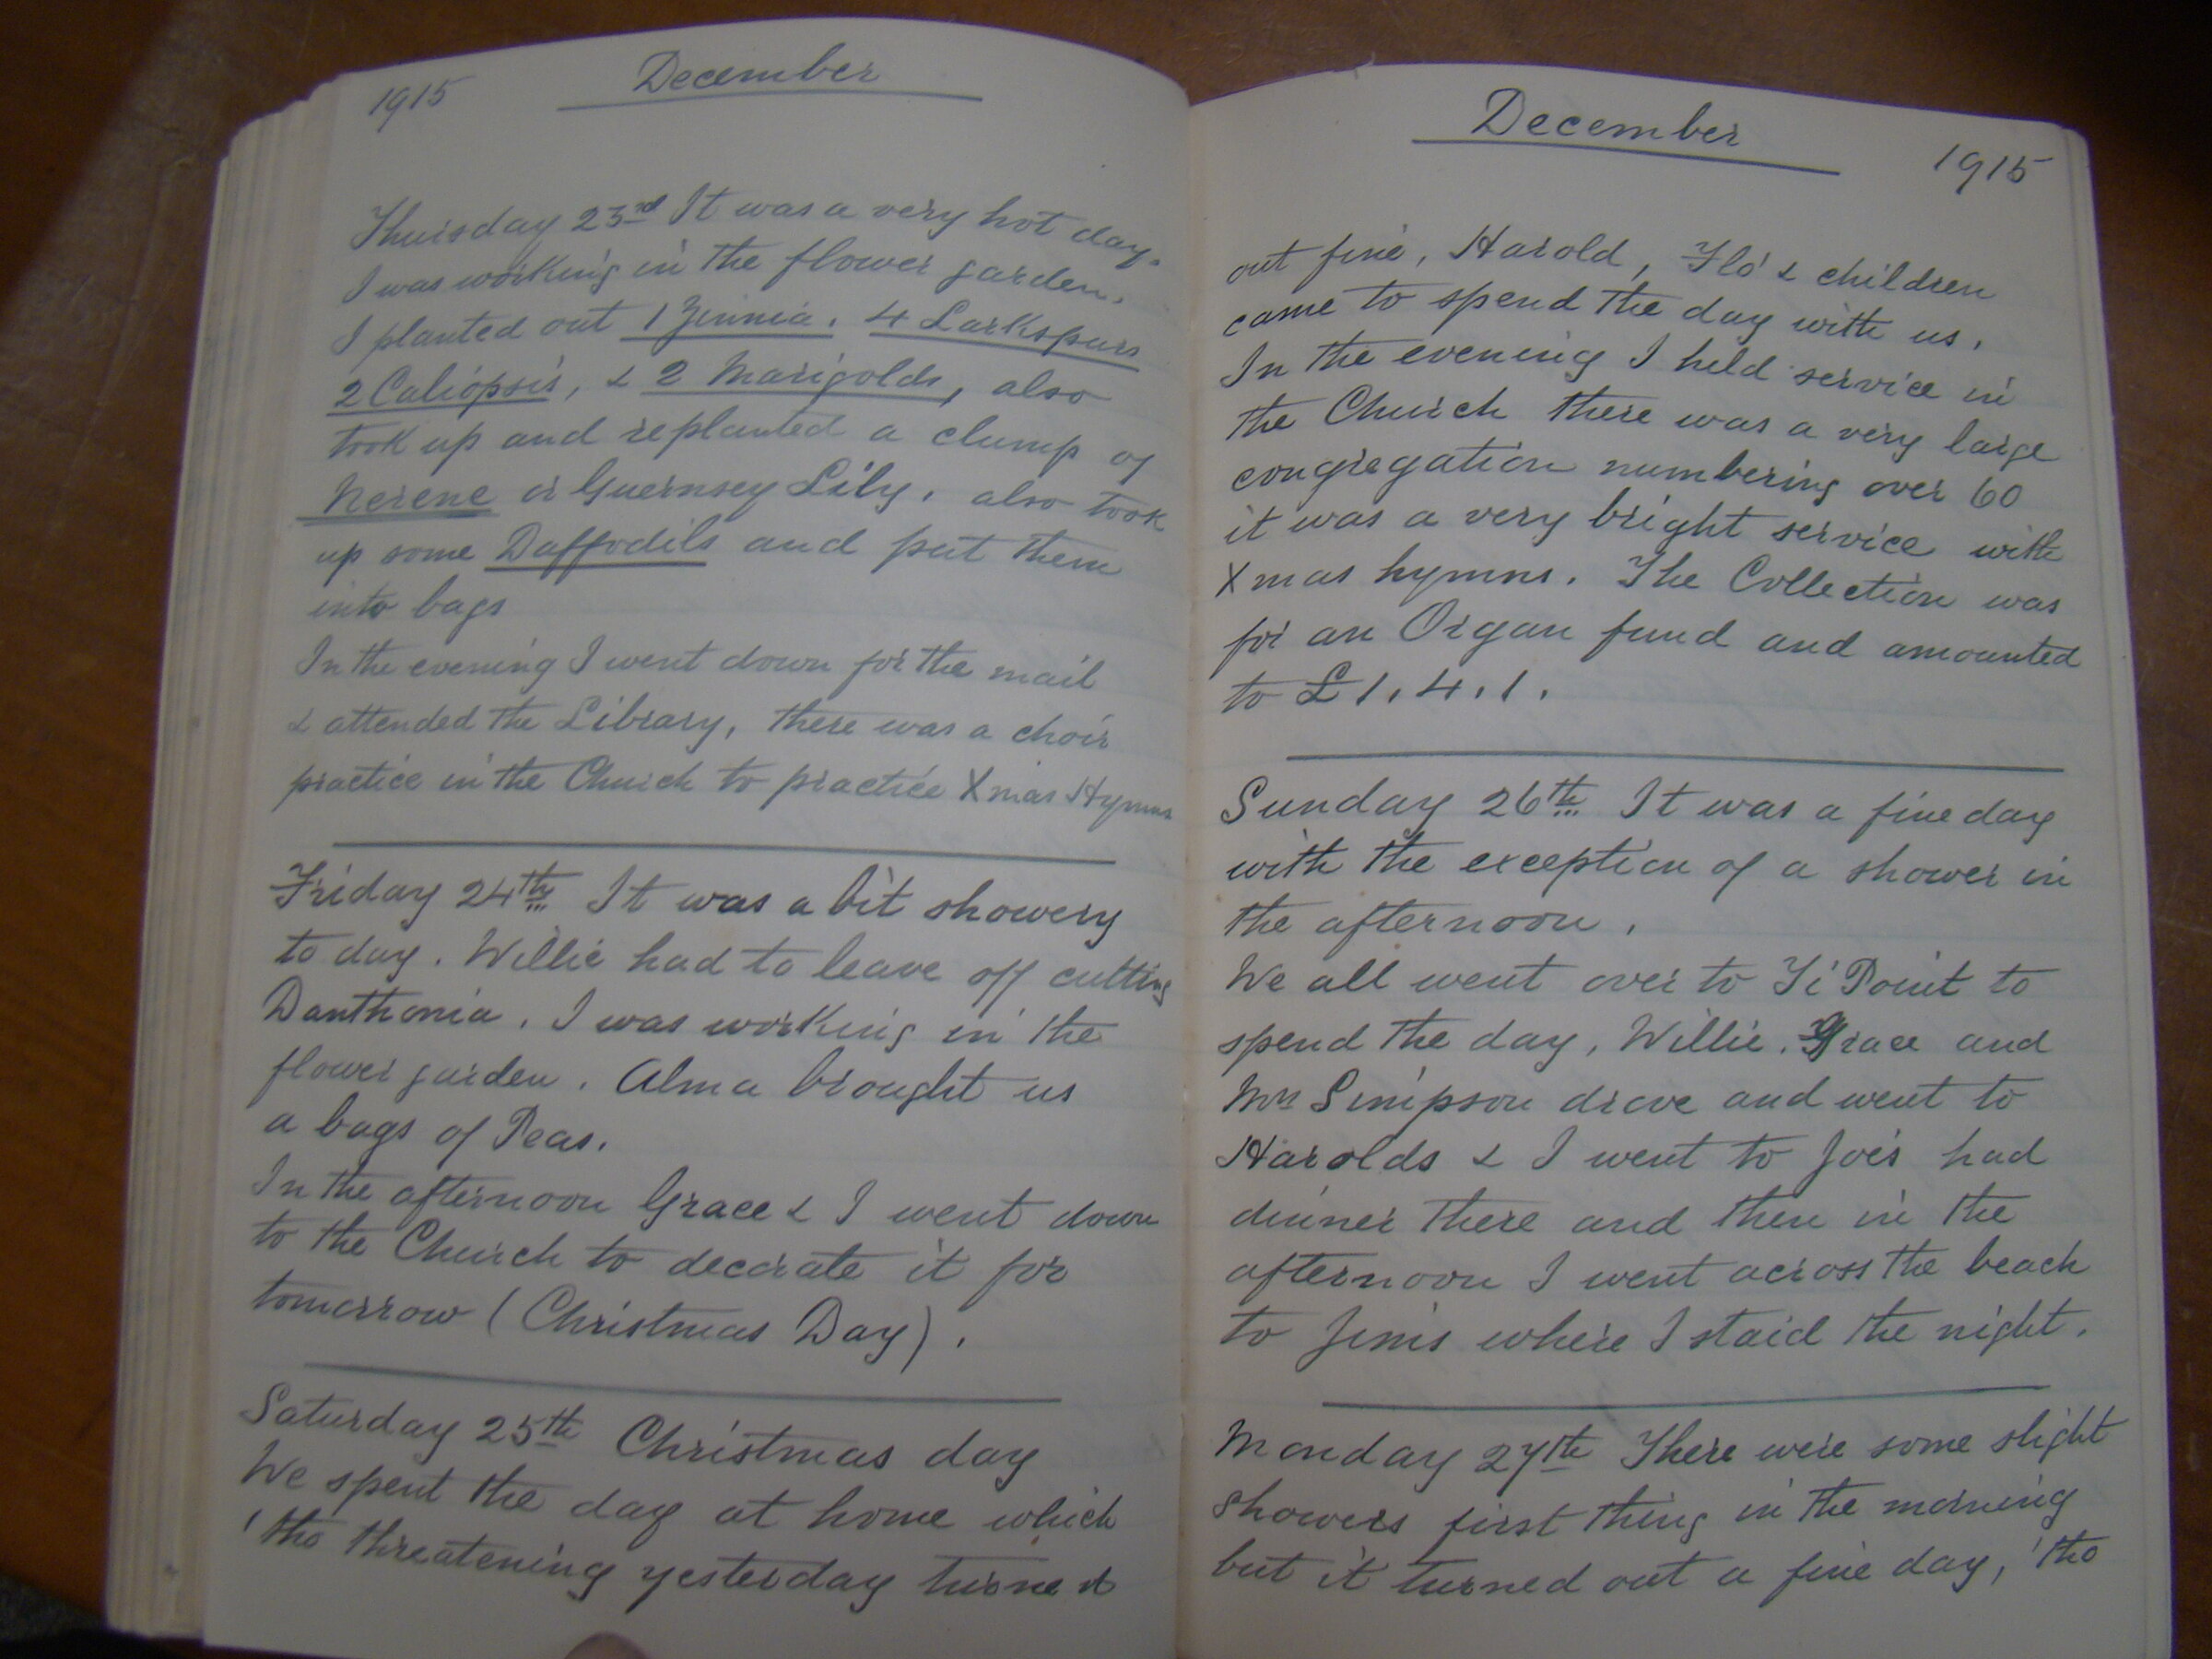 1915 December
Thursday 23rd It was a very hot day.
I was working in the flower garden.
I planted out 1 Zinnia. 4 Larkspurs
2 Caliopsis, & 2 Marigolds, also
took up and replanted a clump of
Nerene or Guernsey Lily. also took
up some Daffodils and put them
into bags
In the evening I went down for the mail
& attended the Library, there was a choir
practice in the Church to practice Xmas Hymns
Friday 24th It was a bit showery
to day. Willie had to leave off cutting
Danthonia. I was working in the
flower garden. Alma brought us
a bags of Peas.
In the afternoon Grace & I went down
to the Church to decorate it for
tomorrow (Christmas Day).
Saturday 25th Christmas day
We spent the day at home which
'tho threatening yesterday turned
December 1915
out fine, Harold, Flo & children
came to spend the day with us.
In the evening I held service in
the Church there was a very large
congregation numbering over 60
it was a very bright service with
Xmas hymns. The Collection was
for an Organ fund and amounted
to £1.4.1.
Sunday 26th It was a fine day
with the exception of a shower in
the afternoon.
We all went over to Ti Point to
spend the day, Willie. Grace and
Mrs Simpson drove and went to
Harolds & I went to Joes had
dinner there and then in the
afternoon I went across the beach
to Jims where I staid the night.
Monday 27th There were some slight
showers first thing in the morning
but it turned out a fine day, 'tho